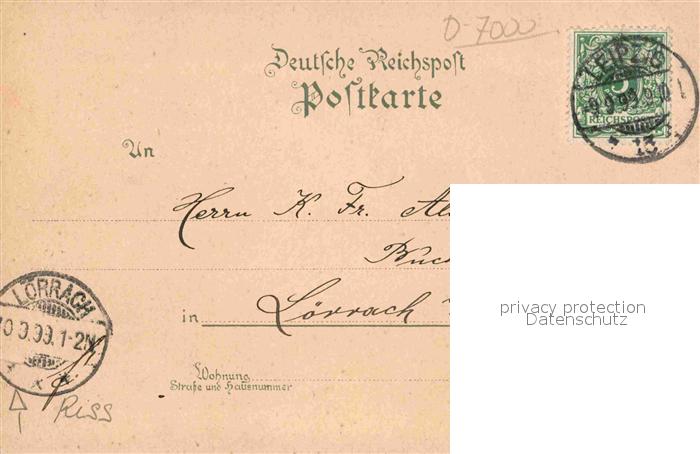 D-7000
Deutsche Reichspost
Postkarte
LEIPZIG
9.9.99.9-10
* 13
REICHSPOST
An
Herrn K. Fr.
Lörrach
in
LÖRRACH
10.9.99.1-2N
Wohnung
Straße und Hausnummer
Riss
privacy protection
Datenschutz